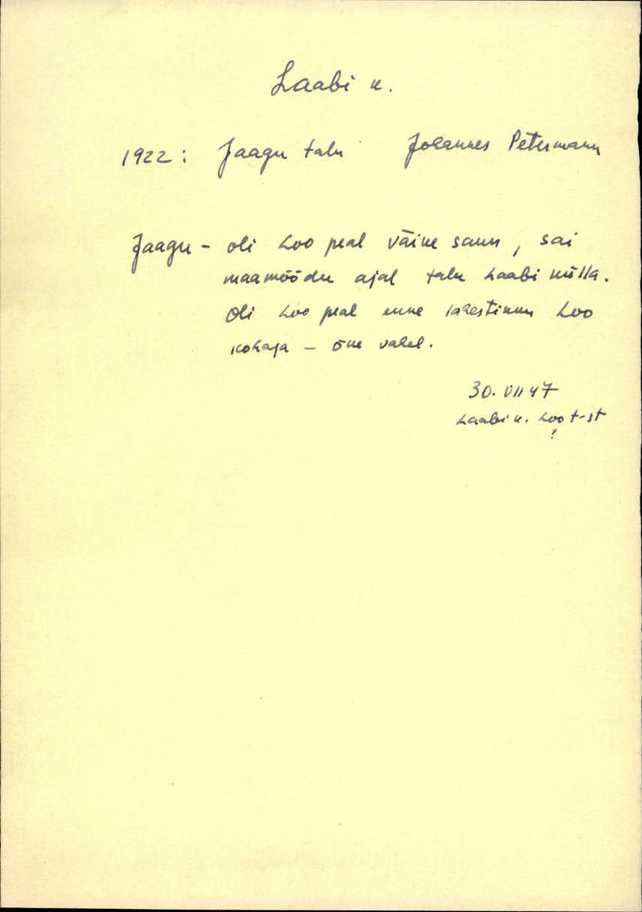 Laabi k.
1922: Jaagu talu Johannes Petermann
Jaagu - oli Loo peal väike saun, sai
maamõõdu ajal talu Laabi külla.
Oli Loo peal enne Loo
- õue vahel.
30. VII 47
Laabi k. Loo t-st
?